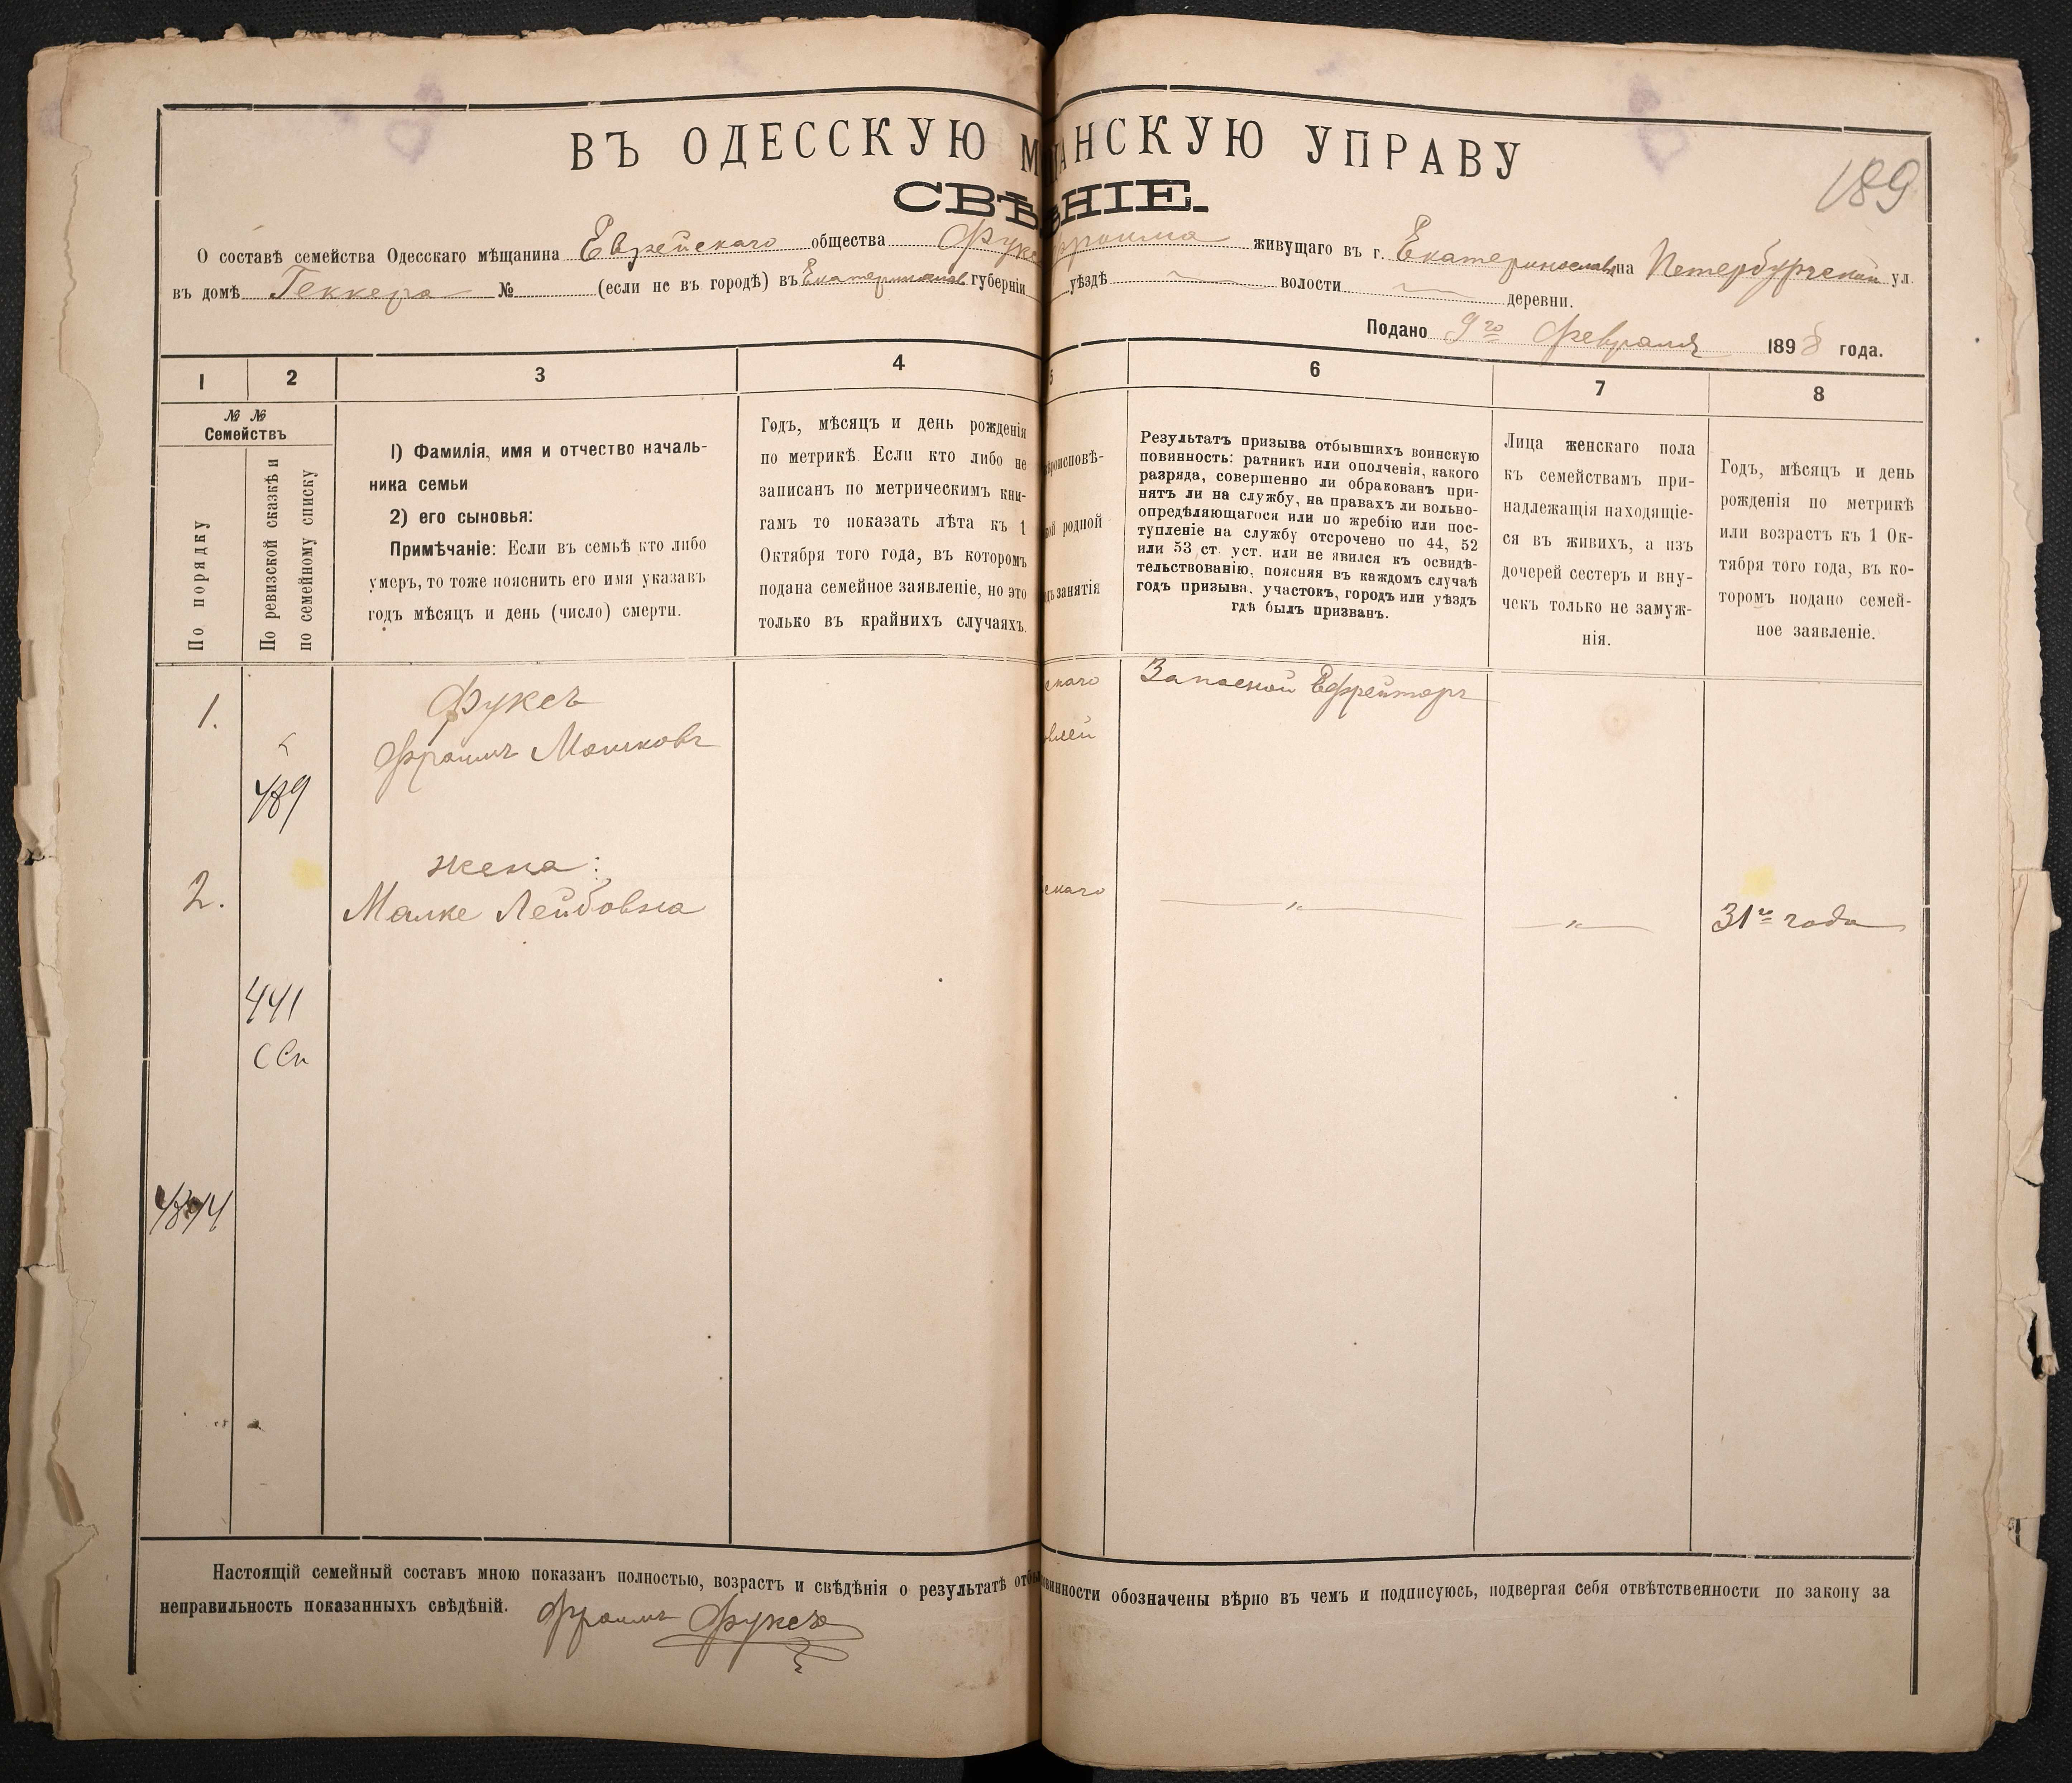 189
ВЪ ОДЕССКУЮ М АНСКУЮ УПРАВУ
СВѢ НІЕ.
О составѣ семейства Одесскаго мѣщанина Еврейскаго общества Фукс Фроима живущаго въ г. Екатеринославѣ на Петербургской ул.
въ домѣ Геккера № (если не въ городѣ) въ Екатеринослав губерніи уѣздѣ волости деревни.
Подано 9го Февраля 1898 года.
1 2 3 4 5 6 7 8
№ №
Семействъ
По порядку
По ревизской сказкѣ и
по семейному списку
1) Фамилія, имя и отчество началь-
ника семьи
2) его сыновья:
Примѣчаніе: Если въ семьѣ кто либо
умеръ, то тоже пояснить его имя указавъ
годъ мѣсяцъ и день (число) смерти.
Годъ, мѣсяцъ и день рожденія
по метрикѣ. Если кто либо не
записанъ по метрическимъ кни-
гамъ то показать лѣта къ 1
Октября того года, въ которомъ
подана семейное заявленіе, но это
только въ крайнихъ случаяхъ.
роисповѣ-
ой родной
занятія
Результатъ призыва отбывшихъ воинскую
повинность: ратникъ или ополченія, какого
разряда, совершенно ли обракованъ при-
нятъ ли на службу, на правахъ ли вольно-
опредѣляющагося или по жребію или пос-
тупленіе на службу отсрочено по 44, 52
или 53 ст. уст. или не явился къ освидѣ-
тельствованію, поясняя въ каждомъ случаѣ
годъ призыва, участокъ, городъ или уѣздъ
гдѣ былъ призванъ.
Лица женскаго пола
къ семействамъ при-
надлежащія находящіе-
ся въ живихъ, а изъ
дочерей сестеръ и вну-
чекъ только не замуж-
нія.
Годъ, мѣсяцъ и день
рожденія по метрикѣ
или возрастъ къ 1 Ок-
тября того года, въ ко-
торомъ подано семей-
ное заявленіе.
1.
489
Фуксъ
Фроимъ Мошковъ
скаго
влей
Запасной Ефрейторъ
2.
жена:
Малке Лейбовна
скаго
"
"
31го года
441
ССп
Настоящій семейный составъ мною показанъ полностью, возрастъ и свѣдѣнія о результатѣ отб винности обозначены вѣрно въ чемъ и подписуюсь, подвергая себя отвѣтственности по закону за
неправильность показанныхъ свѣдѣній. Фроимъ Фуксъ